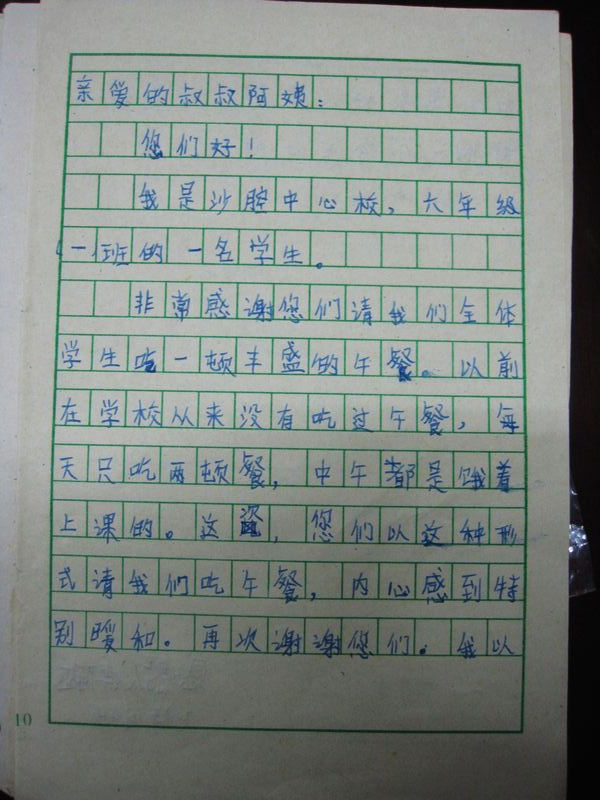 亲爱的叔叔阿姨：
您们好！
我是沙腔中心校，六年级
(一)班的一名学生。
非常感谢您们请我们全体
学生吃一顿丰盛的午餐。以前
在学校从来没有吃过午餐，每
天只吃两顿餐，中午都是饿着
上课的。这，您们以这种形
式请我们吃午餐，内心感到特
别暖和。再次谢谢您们。我以
10